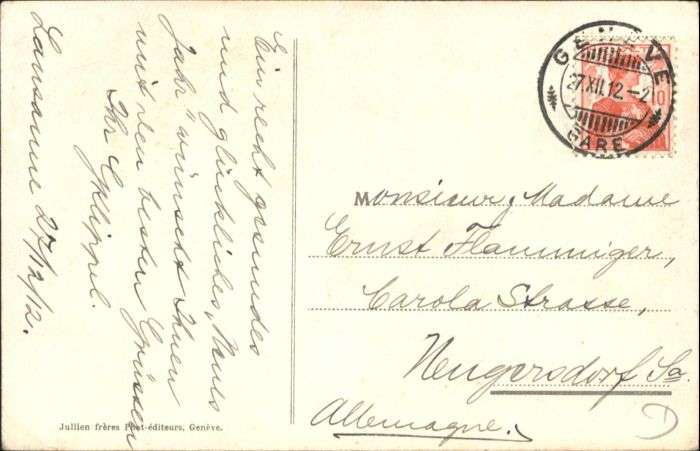 Ein recht gesundes
und glückliches „Neues
Jahr“ wünscht Ihnen
mit den besten Grüssen
Ihr
Lausanne 27/12/12.
GENÈVE
27.XII.12.-2
GARE
10
Monsieur, Madame
Ernst Flammiger,
Carola Strasse,
Neugersdorf Sa.
Allemagne.
Jullien frères Phot-éditeurs, Genève.